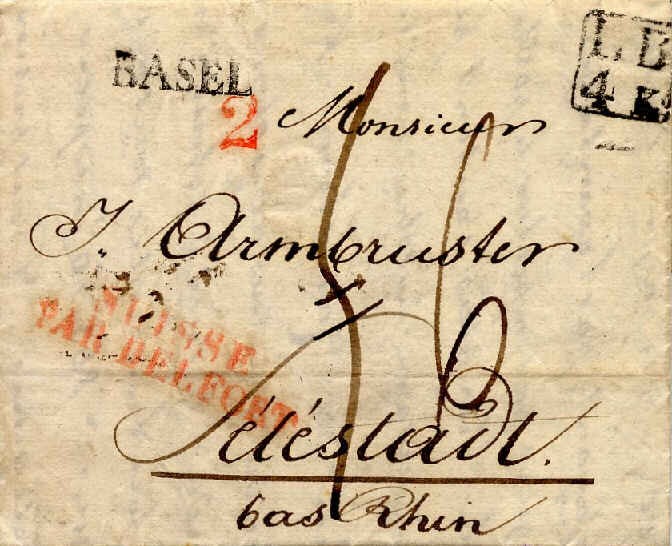 BASEL
L B
4 K
2
Monsieur
J. Armbruster
SUISSE
PAR BELFORT
Séléstadt.
bas Rhin